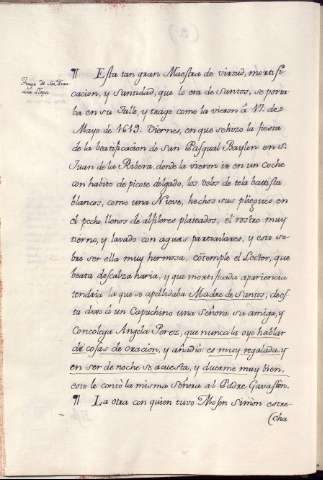 ¶ Esta tan gran Maestra de virtud, mortifi-
cacion, y Santidad, que lo era de Santos, se porta
ba en su talle, y traje como la vieron à 17. de
Mayo de 1619. Viernes, en que se hizo la fiesta
de la beatificacion de San Pasqual Baylon en S.
Juan de la Ribera, donde la vieron ir en un coche
con habito de picote delgado, los velos de tela baptista
blancos, como una Nieve, hechos sus pliegues en
el pecho, llenos de alfileres plateados, el rostro muy
tierno, y lavado con aguas particulares, y esto so-
bre ser ella muy hermosa, contemple el Lector, que
beata descalza haria, y que mortificada apariencia
tendria la que se apellidaba Madre de Santos, de es
ta dixo à un Capuchino una Señora su amiga, y
Conocleya Angela Perez, que nunca la oyo hablar
de cosas de oracion, y añadio es muy regalada, y
en ser de noche se acuesta, y duerme muy bien,
esto le contò la misma Señora al Padre Gavaston.
¶ La otra con quien tuvo Mosen Simon estre-
(cha